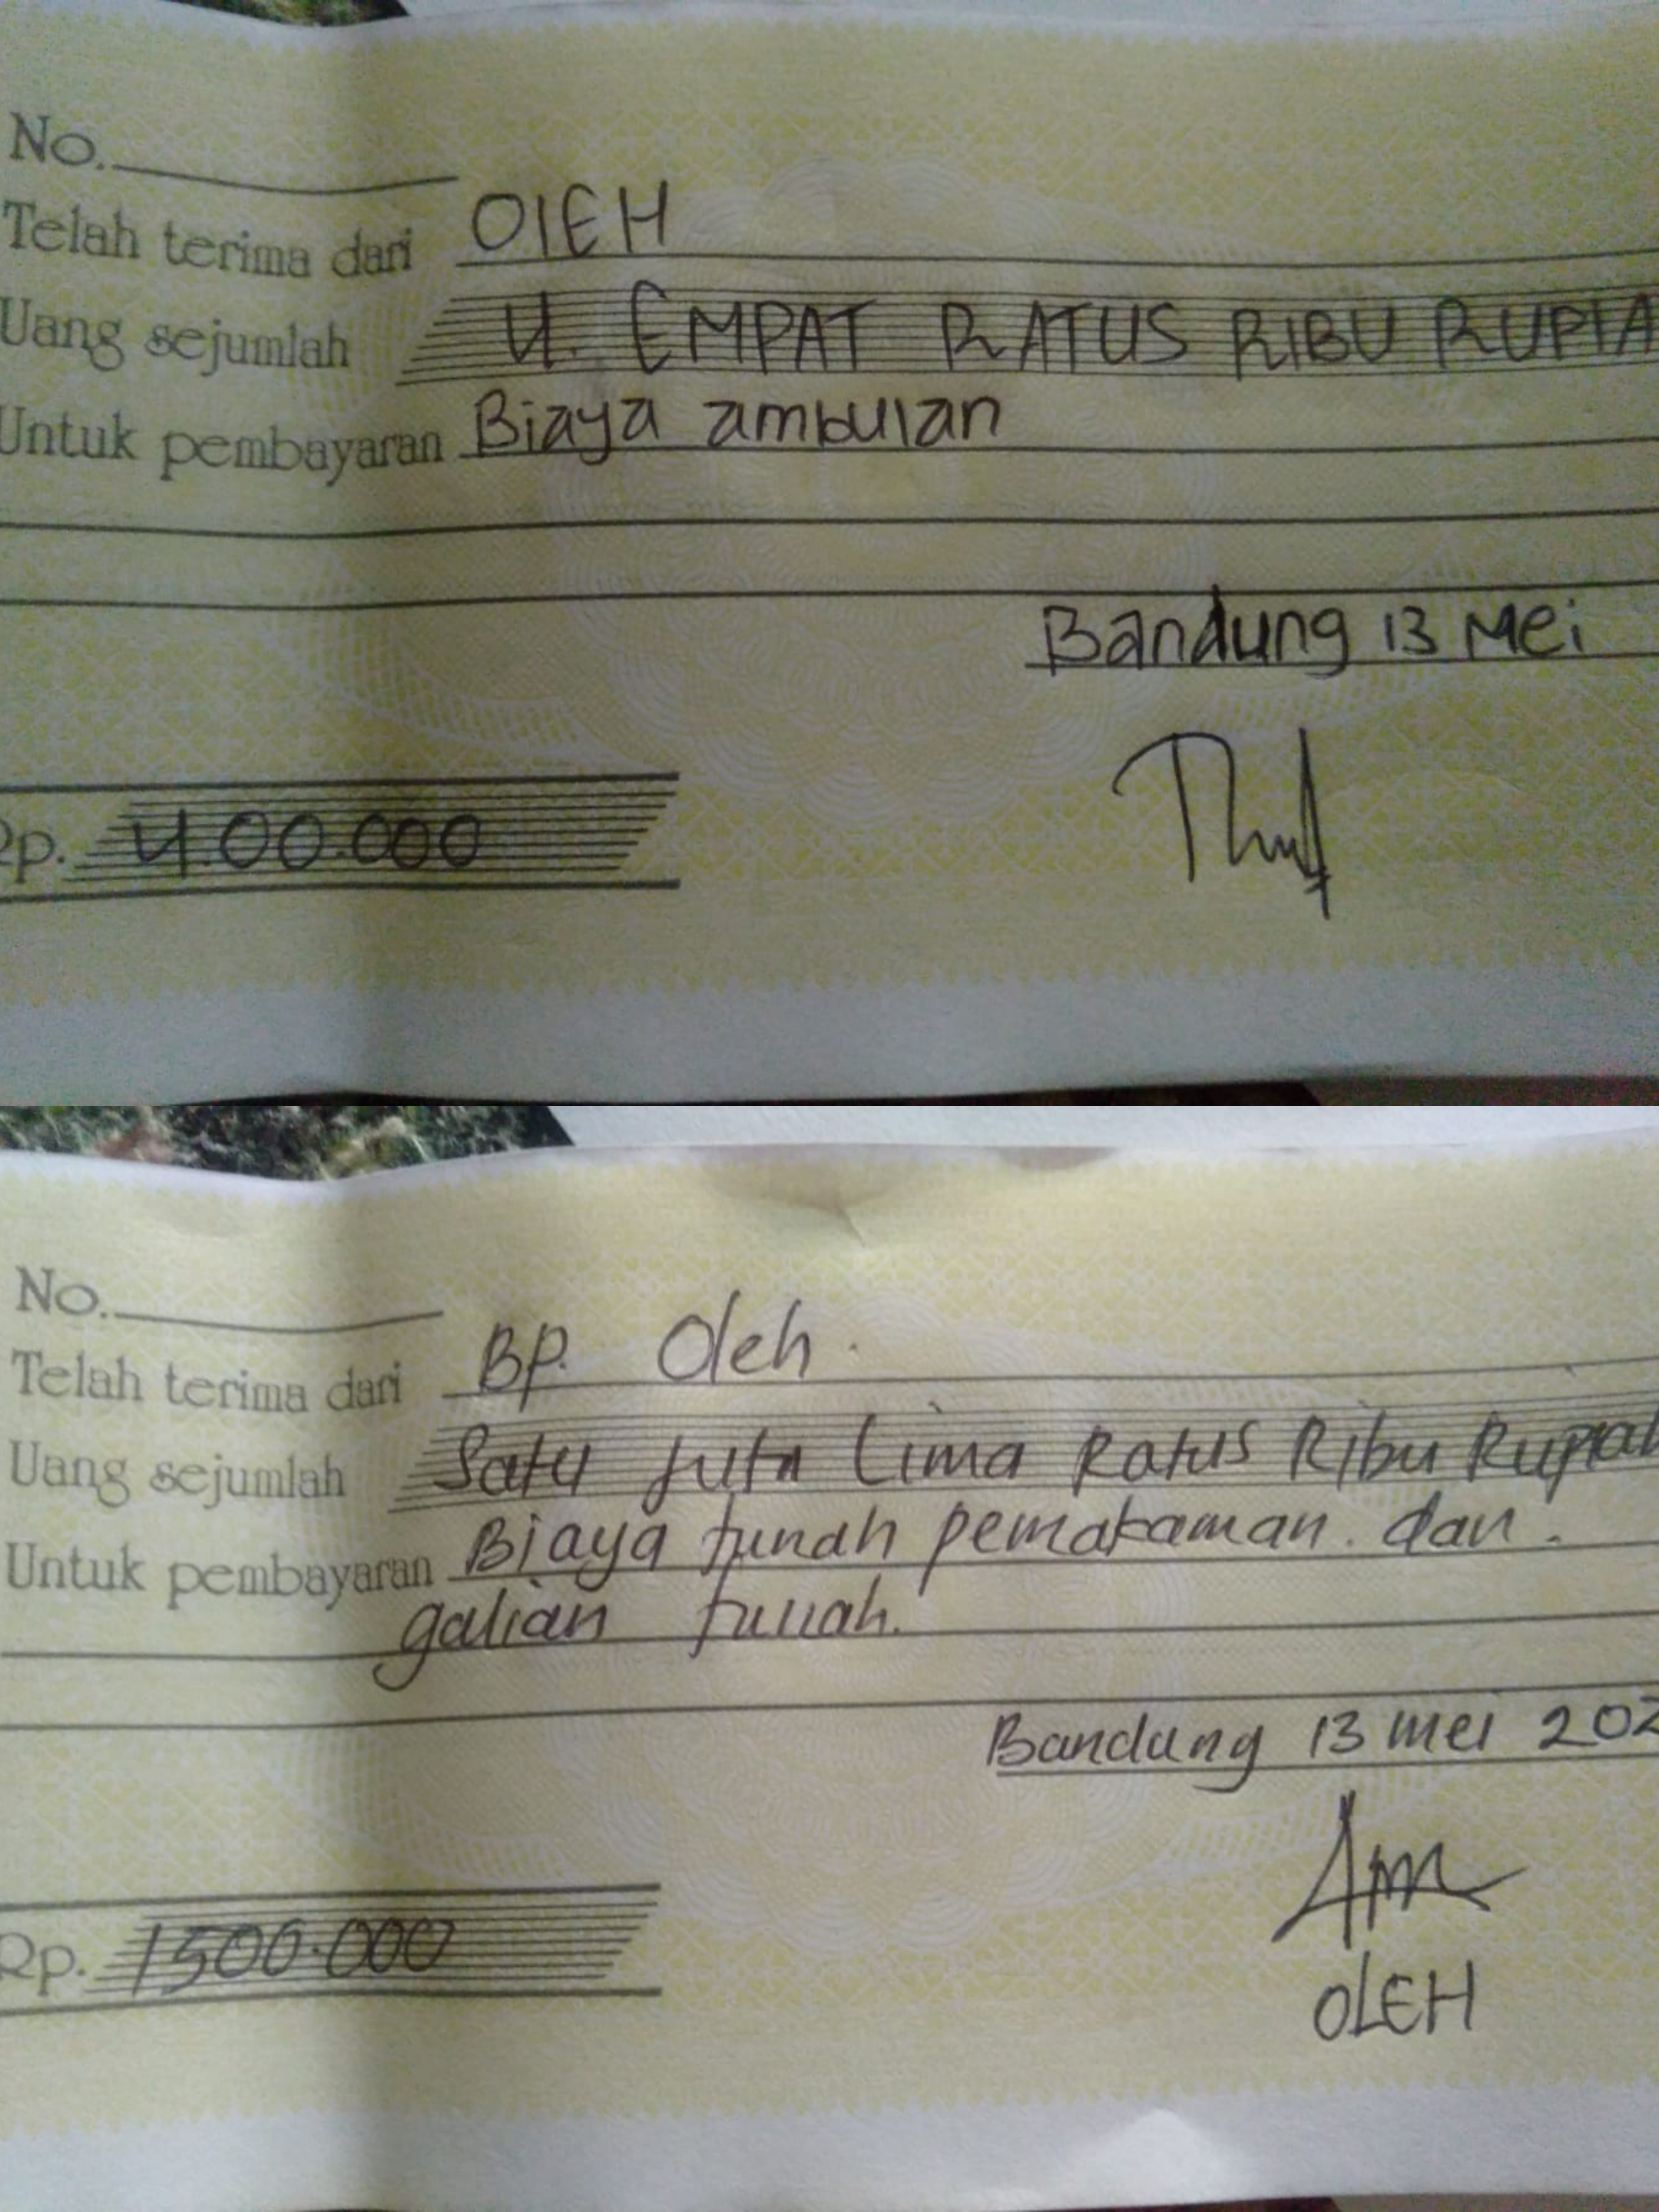 No.
Telah terima dari OlEH
Uang sejumlah 4. EMPAT RATUS RIBU RUPIA
Untuk pembayaran Biaya ambulan
Bandung 13 Mei
Rp. 400.000
No.
Telah terima dari BP. Oleh.
Uang sejumlah Satu Juta Lima Ratus Ribu Rupiah
Untuk pembayaran Biaya tanah pemakaman. dan.
galian tanah.
Bandung 13 mei 202
Rp. 1500.000
OLEH